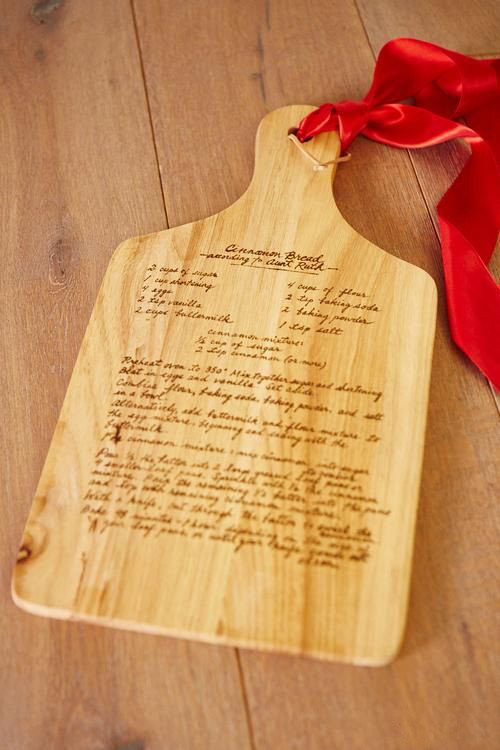 Cinnamon Bread
according to Aunt Ruth
2 cups of sugar
1 cup shortening
4 eggs
2 tsp vanilla
2 cups buttermilk
4 cups of flour
2 tsp baking soda
2 baking powder
1 tsp salt
cinnamon mixture:
cup of sugar
2 tsp cinnamon (or more)
Preheat oven to 350° Mix together sugar and shortening
Blat in eggs and vanilla. Set aside.
Combine flour, baking soda, baking powder, and salt
in a bowl.
Alternatively, add buttermilk and flour mixture to
the egg mixture, beginning and ending with the
buttermilk.
For cinnamon mixture: mix cinnamon into sugar
Pour 1/2 the batter into 2 large greased loaf pans or
4 smaller loaf pans. Sprinkle with the cinnamon
mixture. Pour the remaining batter into the pans
and top with remaining cinnamon mixture.
With a knife, cut through the batter to swirl the
Bake minutes - 1 hour, depending on the size of
your loaf pans, or until your knife comes out
clean!